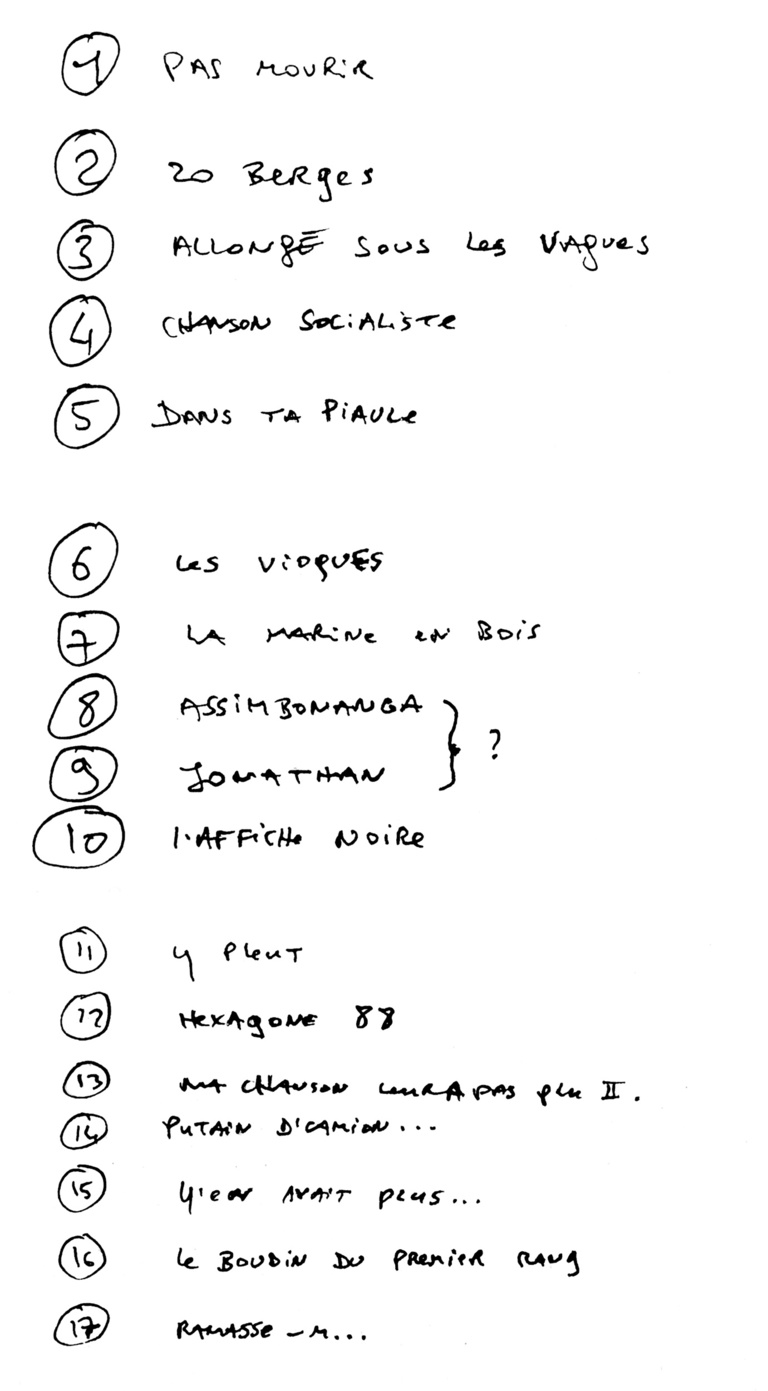 1 PAS MOURIR
2 20 BERGES
3 ALLONGÉ SOUS LES VAGUES
4 CHANSON SOCIALISTE
5 DANS TA PIAULE
6 LES VIOQUES
7 LA MARINE EN BOIS
8 ASSIMBONANGA
} ?
9 JONATHAN
10 L'AFFICHE NOIRE
11 Y PLEUT
12 HEXAGONE 88
13 MA CHANSON LEUR A PAS PLU II.
14 PUTAIN D'CAMION...
15 Y'EN AVAIT PLUS...
16 LE BOUDIN DU PREMIER RANG
17 RAMASSE-M...